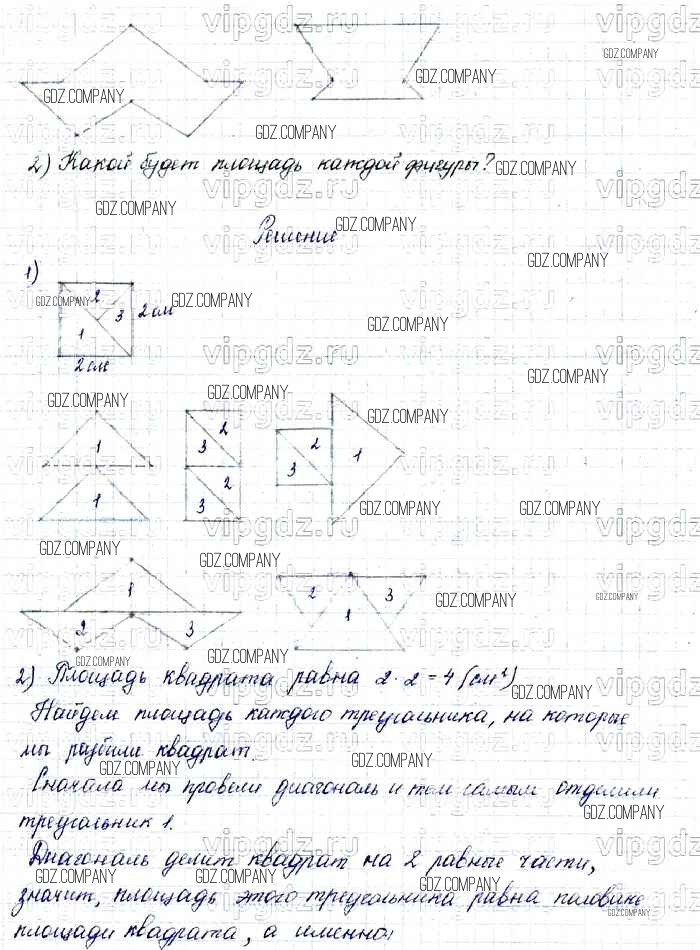 2) Какой будет площадь каждой фигуры?
Решение
1)
2
3
2 см
1
2 см
1
2
3
2
1
1
2
3
3
1
2
3
2
1
3
2) Площадь квадрата равна 2 · 2 = 4 (см²)
Найдем площадь каждого треугольника, на которые
мы разбили квадрат.
Сначала мы провели диагональ и тем самым отделили
треугольник 1.
Диагональ делит квадрат на 2 равные части,
значит, площадь этого треугольника равна половине
площади квадрата, а именно:
vipgdz.ru
GDZ.COMPANY